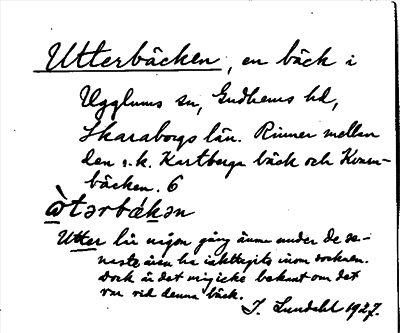 Utterbäcken, en bäck i
Ugglums sn, Gudhems hd,
Skaraborgs län. Rinner mellan
den s.k. Kartbergs bäck och Kvarn-
bäcken. 6
ò̀tərbækən
Utter lär någon gång ännu under de se-
naste åren ha iakttagits inom socknen.
Dock är det mig icke bekant om det
var vid denna bäck.
J. Lundahl 1927.